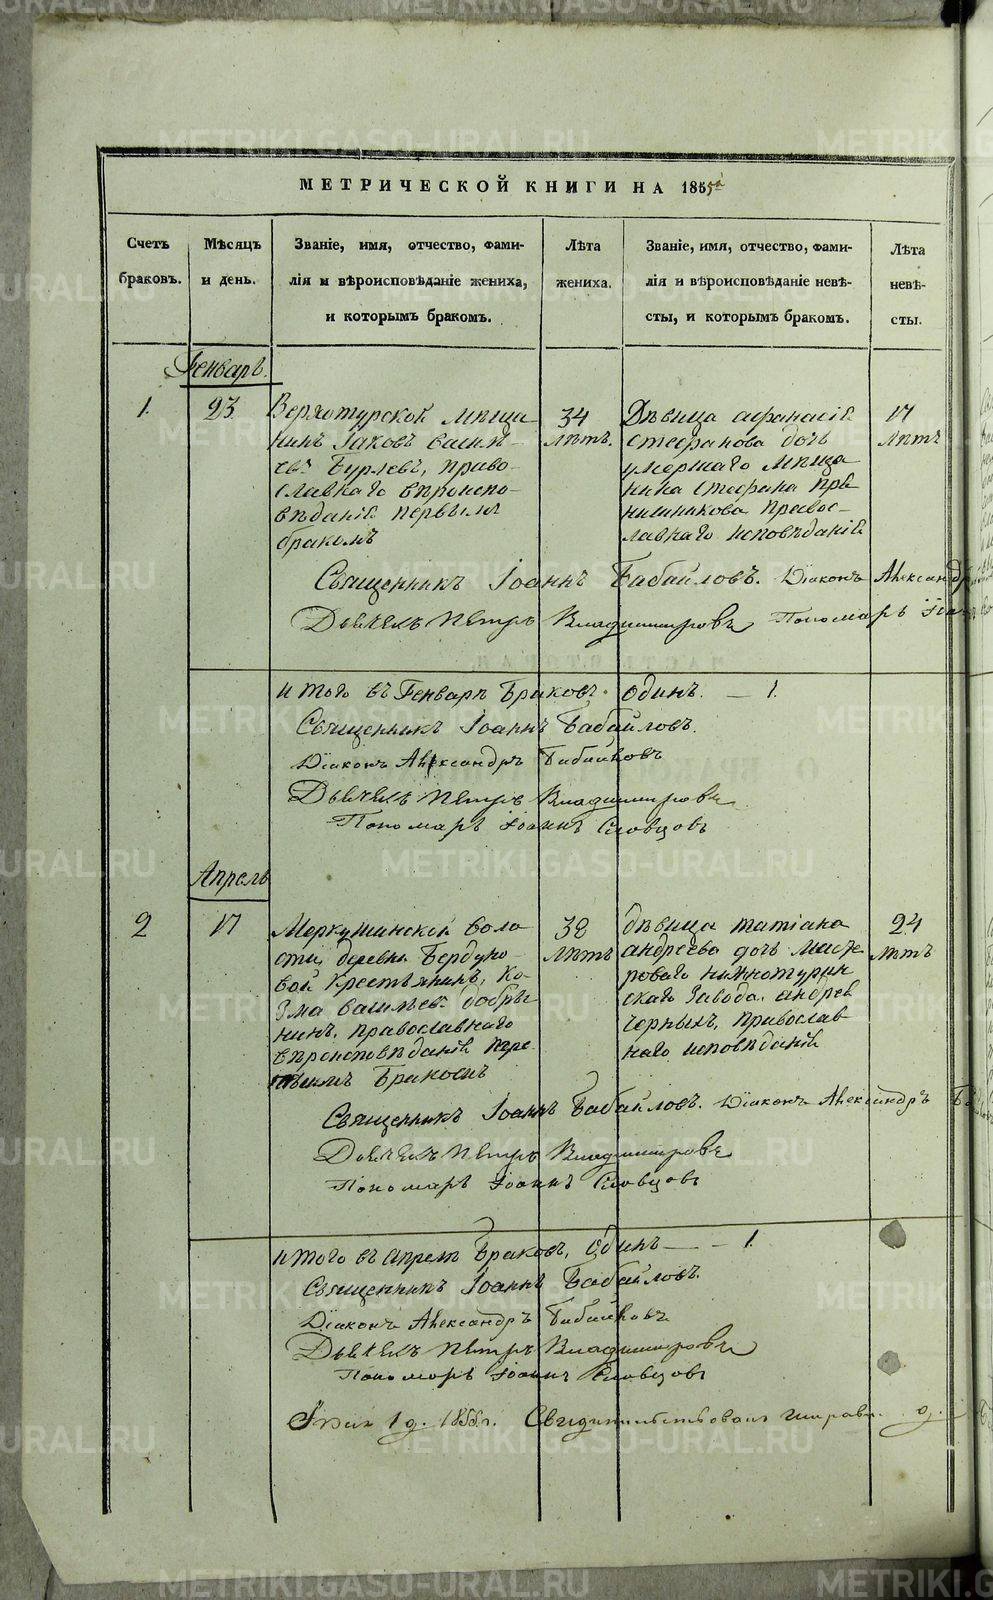 МЕТРИЧЕСКОЙ КНИГИ НА 1855й
Счетъ браковъ.
Мѣсяцъ и день.
Званіе, имя, отчество, фами-
лія и вѣроисповѣданіе жениха,
и которымъ бракомъ.
Лѣта жениха.
Званіе, имя, отчество, фами-
лія и вѣроисповѣданіе невѣ-
сты, и которымъ бракомъ.
Лѣта невѣ-
сты.
Генварь.
1.
23.
Верхотурской мѣща
нинъ Іаковъ Василь-
евъ Бурлевъ, право-
славнаго вѣроиспо-
вѣданія первымъ
бракомъ
34
лѣтъ.
Дѣвица Афанасія
Стефанова дочь
умершаго мѣща
нина Стефана
правос-
лавнаго исповѣданія
17
лѣтъ
Священникъ Іоаннъ Бабайловъ. Діаконъ Александръ
Дьячекъ Петръ Владимировъ Пономарь
Итого въ Генварѣ браковъ. одинъ. — 1.
Священникъ Іоаннъ Бабайловъ.
Діаконъ Александръ Бабайловъ
Дьячекъ Петръ Владимировъ
Пономарь Іоаннъ Словцовъ
Апрель
2
17
Меркушинской воло
сти деревни Бердуно-
вой крестьянинъ, Ко-
зма Васильевъ Добры
нинъ. православнаго
вѣроисповѣданія пер
вымъ бракомъ
32
лѣтъ
дѣвица Татіана
Андреева дочь масте
роваго нижнотурин
скаго завода. Андрея
Черныхъ, православ
наго исповѣданія
24
лѣтъ
Священникъ Іоаннъ Бабайловъ. Діаконъ Александръ
Дьячекъ Петръ Владимировъ
Пономарь Іоаннъ Словцовъ
Итого въ Апрелѣ браковъ, одинъ — — 1.
Священникъ Іоаннъ Бабайловъ.
Діаконъ Александръ Бабайловъ
Дьячекъ Петръ Владимировъ
Пономарь Іоаннъ Словцовъ
1 д. 1855 г. Свидѣтельствовалъ
METRIKI.GASO-URAL.RU